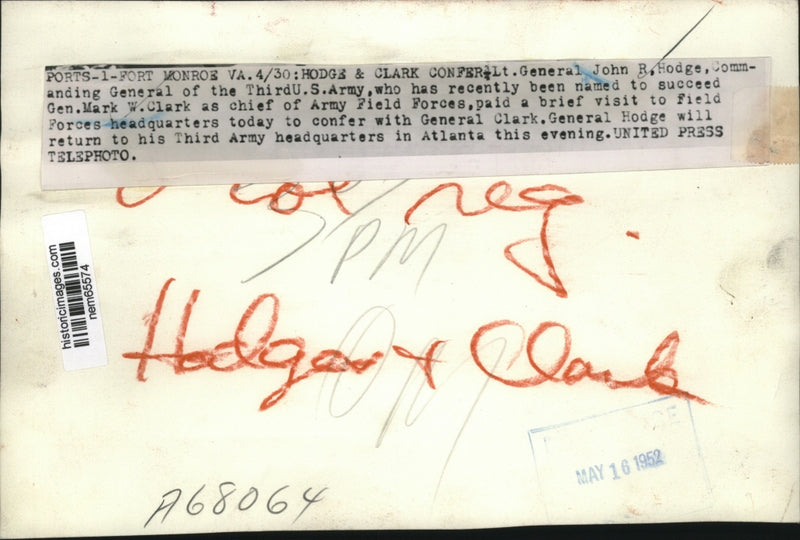 PORTS-1-FORT MONROE VA.4/30:HODGE & CLARK CONFER:Lt.General John R.Hodge,Comm-
anding General of the ThirdU.S.Army,who has recently been named to succeed
Gen.Mark W.Clark as chief of Army Field Forces,paid a brief visit to Field
Forces headquarters today to confer with General Clark.General Hodge will
return to his Third Army headquarters in Atlanta this evening.UNITED PRESS
TELEPHOTO.
col reg.
PM
historicimages.com
nem65574
Hodges + Clark
MAY 16 1952
A68064